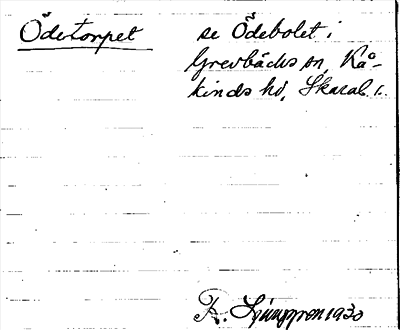 Ödetorpet se Ödebolet i
Grevbäcks sn, Kå-
kinds hd, Skarab. l.
R. Ljunggren 1930